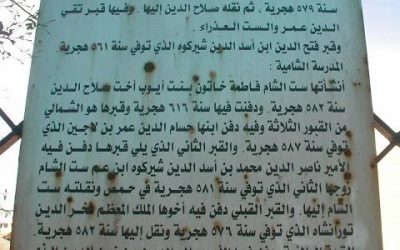 سنة ٥٧٩ هجرية ، ثم نقله صلاح الدين إليها . وفيها قبر تقي
الدين عمر والست العذراء .
وقبر فتح الدين ابن أسد الدين شيركوه الذي توفي سنة ٥٦١ هجرية
المدرسة الشامية :
أنشأتها ست الشام فاطمة خاتون بنت أيوب أخت صلاح الدين
سنة ٥٨٢ هجرية . ودفنت فيها سنة ٦١٦ هجرية وقبرها هو الشمالي
من القبور الثلاثة وفيه دفن ابنها حسام الدين عمر بن لاجين الذي
توفي سنة ٥٨٧ هجرية . والقبر الثاني الذي يلي قبرها دفن فيه
الأمير ناصر الدين محمد بن أسد الدين شيركوه ابن عم ست الشام
زوجها الثاني الذي توفي سنة ٥٨١ هجرية في حمص ونقلته ست
الشام إليها . والقبر القبلي دفن فيه أخوها الملك المعظم فخر الدين
تورانشاه الذي توفي سنة ٥٧٦ هجرية ونقل إليها سنة ٥٨٢ هجرية .